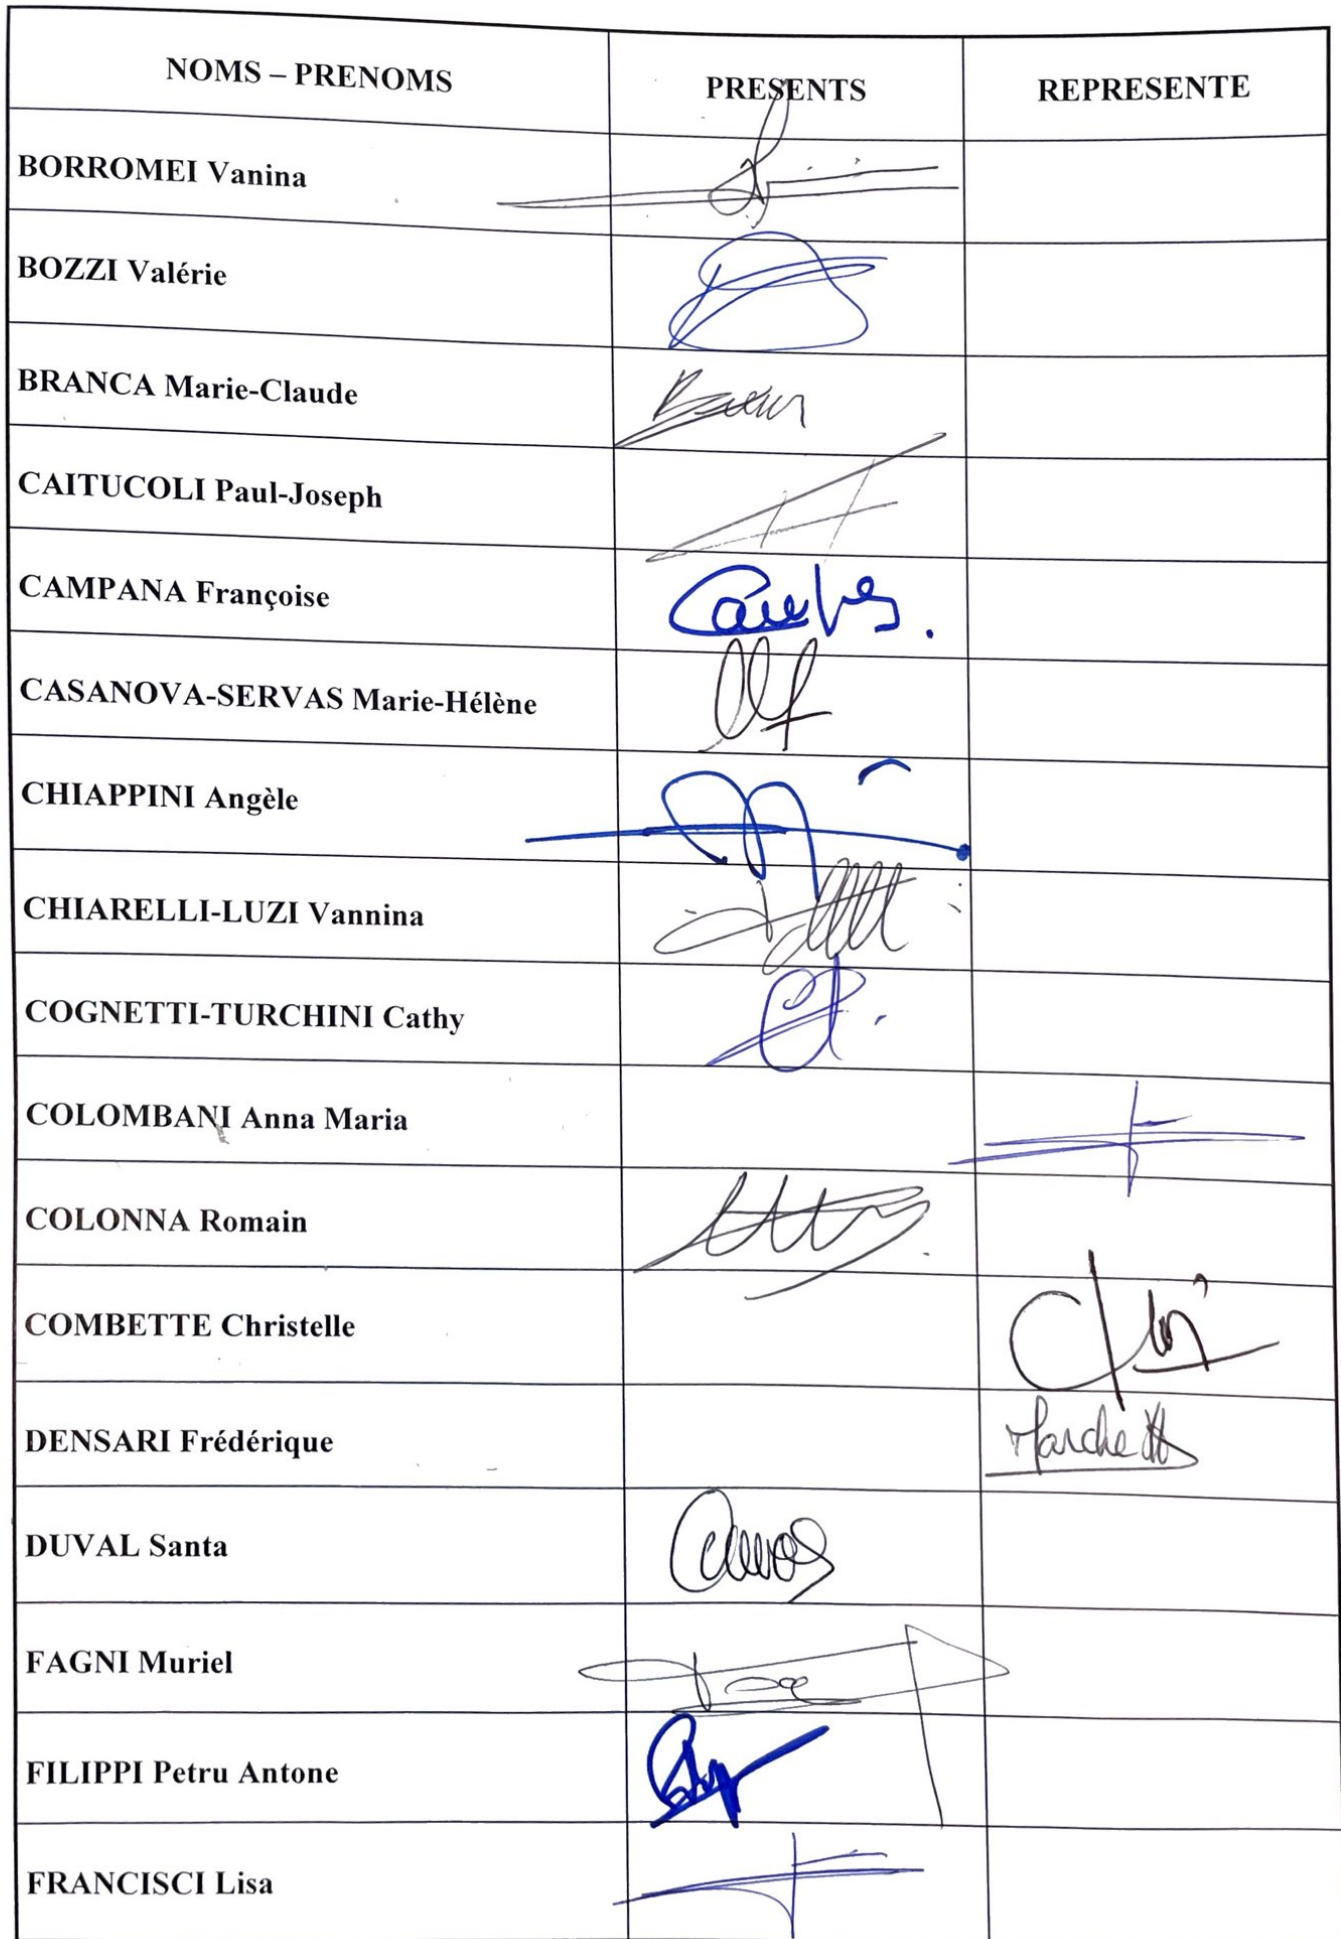 NOMS – PRENOMS PRESENTS REPRESENTE
BORROMEI Vanina
BOZZI Valérie
BRANCA Marie-Claude
CAITUCOLI Paul-Joseph
CAMPANA Françoise
CASANOVA-SERVAS Marie-Hélène
CHIAPPINI Angèle
CHIARELLI-LUZI Vannina
COGNETTI-TURCHINI Cathy
COLOMBANI Anna Maria
COLONNA Romain
COMBETTE Christelle
DENSARI Frédérique Marchetti
DUVAL Santa
FAGNI Muriel
FILIPPI Petru Antone
FRANCISCI Lisa